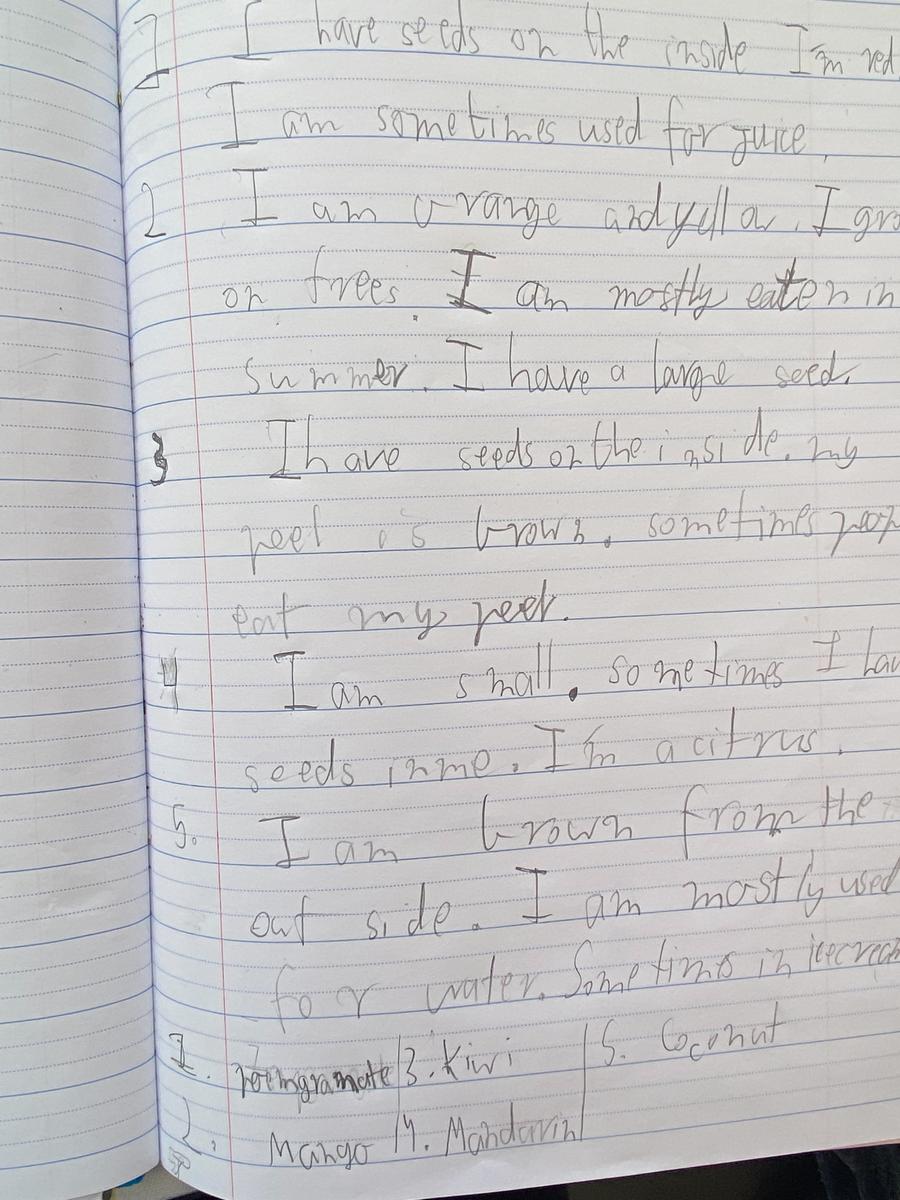 1 I have seeds on the inside I'm red
I am sometimes used for juice.
2 I am orange and yellow. I gro
on trees. I am mostly eaten in
summer. I have a large seed.
3 I have seeds on the inside. my
peel is brown. sometimes peop
eat my peel.
4 I am small. sometimes I hav
seeds in me. I'm a citrus.
5. I am brown from the
out side. I am mostly used
for water. Sometimes in icecream
1. pomgramate 3. Kiwi 5. Coconut
2. Mango 4. Mandarin